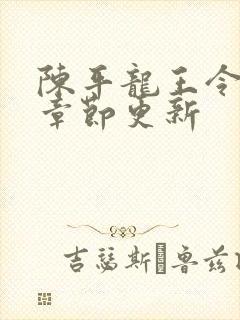 陳平龍王令
章節更新
吉瑟斯 魯茲